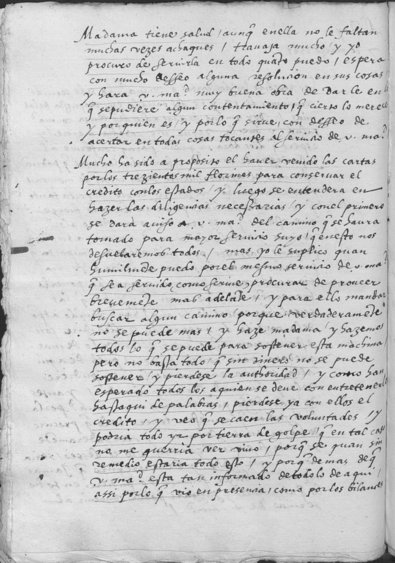 Madama tiene salud / aunq̃ en ella no se faltan
muchas vezes achaques / trauaja mucho y yo
procuro de seruirla en todo quãto puedo / espera
con mucho desseo alguna resolucion en sus cosas
y hara v. mad muy buena obra de darle en lo
q̃ se pudiere algun contentamiento q̃ cierto lo merece
y por quien es / y por lo q̃ sirue con desseo de
acertar en todas cosas tocantes al seruiº de v. mad
Mucho ha sido a proposito el hauer venido las cartas
por los trezientos mil florines para conseruar el
credito con los estados / y luego se entendera en
hazer las diligencias necessarias / y con el primero
se dara auiso a v. mad del camino q̃ se haura
tomado para mayor seruicio suyo / q̃ en esto nos
desuelaremos todos / mas yo le suplico quan
humilmẽte puedo por el mesmo seruicio de v. mad
q̃ sea seruido, como se sirue, procurar de proueer
breuemẽte mas adelãte / y para ello mandar
buscar algun camino / porque verdaderamẽte
no se puede mas / y haze madama y hazemos
todos lo q̃ se puede para sostener esta machina
pero no basta todo q̃ sin dinero no se puede
sostener / y pierdese la authoridad / y como han
esperado todos los a quien se deue con entretenerlos
hasta qui de palabras / pierdese ya con ellos el
credito / y veo q̃ se caen las voluntades / y
podria todo yr por tierra de golpe / q̃ en tal caso
no me querria ver viuo / porq̃ se quan sin
remedio estaria todo esto / y porq̃ demas de q̃
v. mad esta tan informado de todo lo de aqui /
assi por lo q̃ vio en presencia / como por los bilances